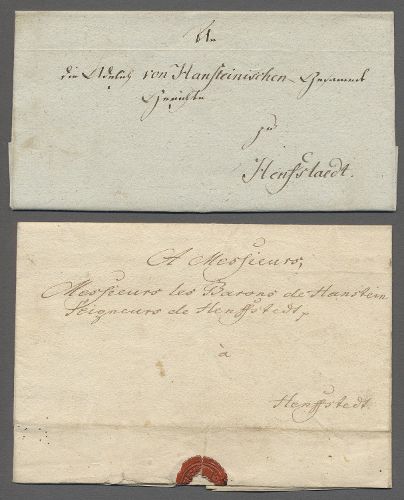 An
die Adelich von Hansteinischen Gesammt
Gerichte
zu
Henfstaedt.
A Messieurs,
Messieurs les Barons de Hanstein
Seigneurs de Henffstedt,
à
Henffstedt.